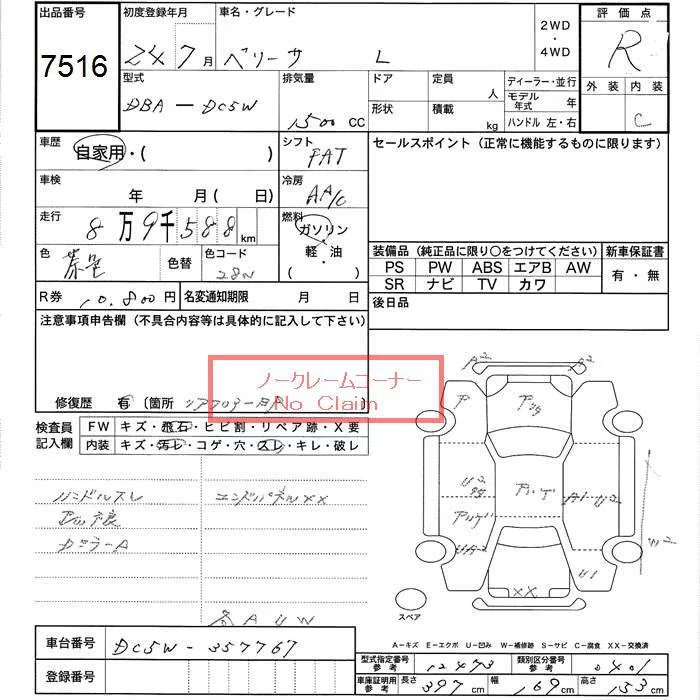 出品番号 初度登録年月 車名・グレード 2WD ・ 4WD 評価点
7516 24 7月 ベリーサ L R
外装 内装
C
型式 排気量 ドア 定員 人 ディーラー・並行
DBA — DC5W 1500 CC 形状 積載 kg モデル年式 年
ハンドル 左・右
車歴 自家用・( ) シフト FAT セールスポイント(正常に機能するものに限ります)
車検 年 月(日) 冷房 AA/C
走行 8万9千588km 燃料 ガソリン・軽・油
色 茶 色替 色コード 28N
装備品(純正品に限り○をつけてください) 新車保証書
PS PW ABS エアB AW 有・無
SR ナビ TV カワ
R券 10,800円 名変通知期限 月 日 後日品
注意事項申告欄(不具合内容等は具体的に記入して下さい)
ノークレームコーナー
No Claim
修復歴 有 〔箇所
検査員記入欄 FW キズ・飛石・ヒビ割・リペア跡・X要
内装 キズ・汚レ・コゲ・穴・スレ・キレ・破レ
ハンドルスレ エンドパネルXX
A2 A2
XX
スペア
A-キズ E-エクボ U-凹み W-補修跡 S-サビ C-腐食 XX-交換済
車台番号 DC5W-357767
登録番号
型式指定番号 参考 12473 類別区分番号 参考 0401
車庫証明用 参考 長さ 397cm 幅 169cm 高さ 153cm